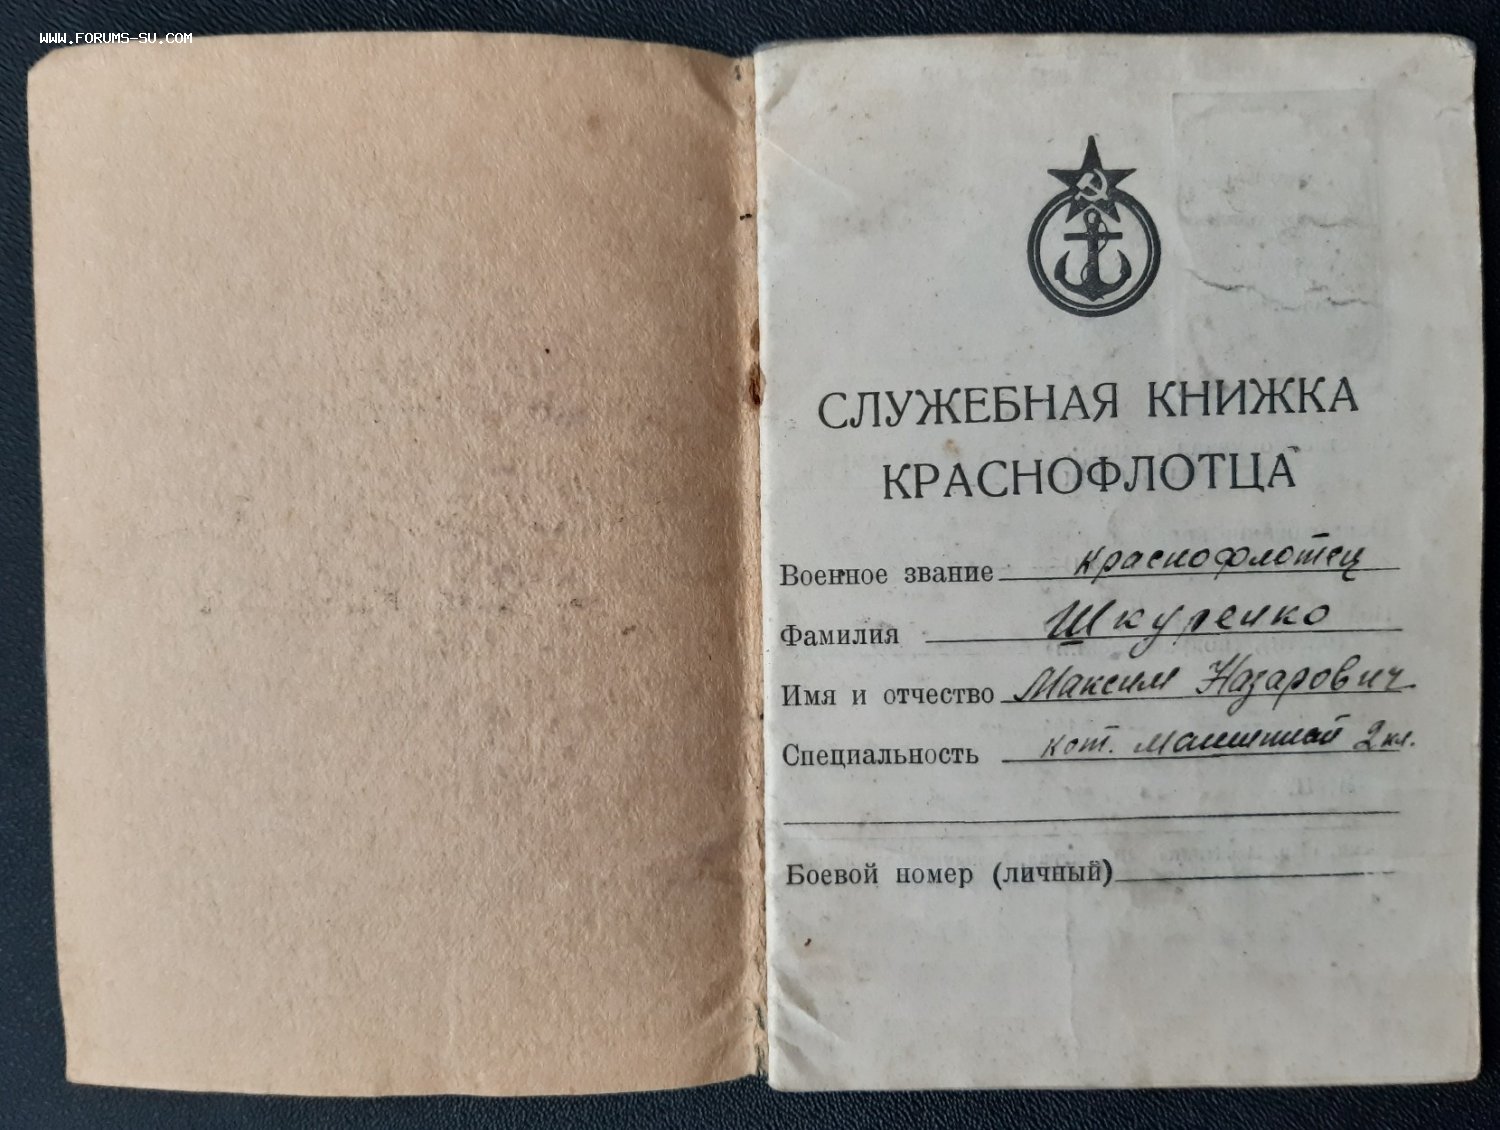 WWW.FORUMS-SU.COM
СЛУЖЕБНАЯ КНИЖКА
КРАСНОФЛОТЦА
Военное звание краснофлотец
Фамилия Шкуренко
Имя и отчество Максим Назарович
Специальность кот. машинный 2 кл.
Боевой номер (личный)